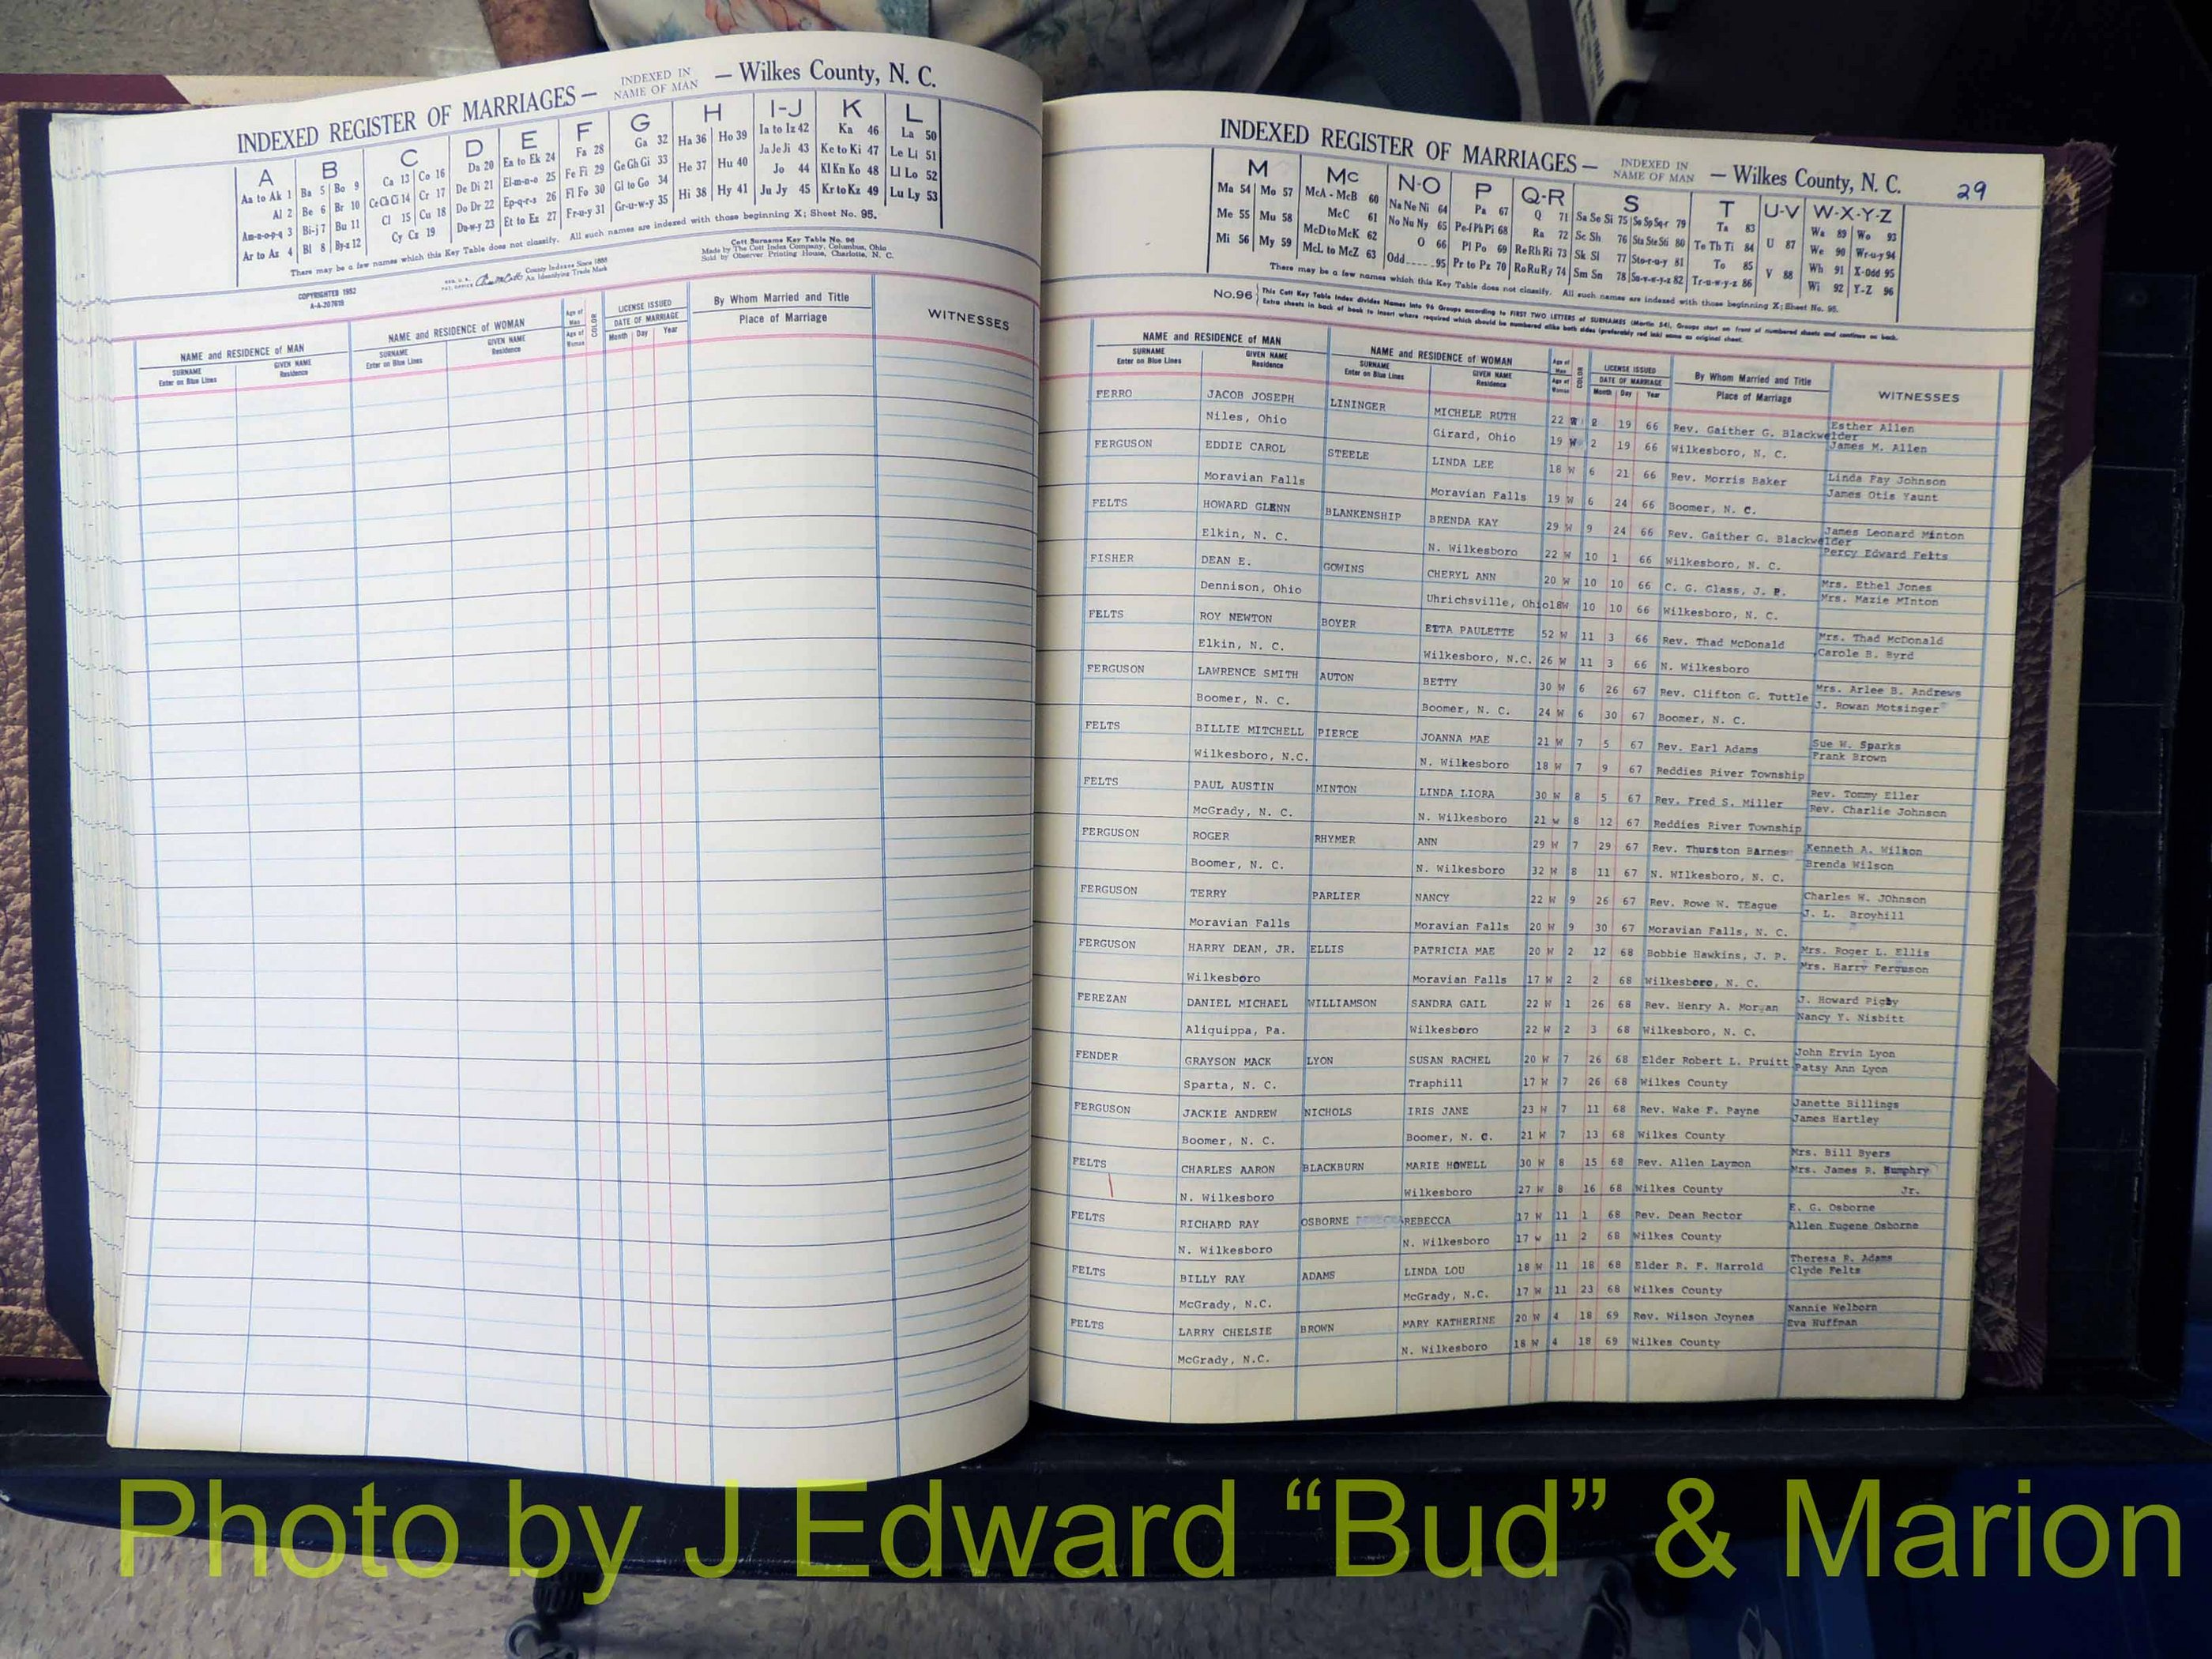 INDEXED REGISTER OF MARRIAGES — INDEXED IN NAME OF MAN — Wilkes County, N. C.
A B C D E F G H I-J K L
Aa to Ak 1 Ba 5 Bo 9 Ca 13 Co 16 Da 20 Ea to Ek 24 Fa 28 Ga 32 Ha 36 Ho 39 Ia to Iz 42 Ka 46 La 50
Al 2 Be 6 Br 10 Ce Ch Ci 14 Cr 17 De Di 21 El-m-n-o 25 Fe Fi 29 Ge Gh Gi 33 He 37 Hu 40 Ja Je Ji 43 Ke to Ki 47 Le Li 51
Am-n-o-p-q 3 Bi-j 7 Bu 11 Cl 15 Cu 18 Do Dr 22 Ep-q-r-s 26 Fl Fo 30 Gl to Go 34 Hi 38 Hy 41 Jo 44 Kl Kn Ko 48 Ll Lo 52
Ar to Az 4 Bl 8 By-z 12 Cy Cz 19 Du-w-y 23 Et to Ez 27 Fr-u-y 31 Gr-u-w-y 35 Ju Jy 45 Kr to Kz 49 Lu Ly 53
There may be a few names which this Key Table does not classify. All such names are indexed with those beginning X; Sheet No. 95.
COPYRIGHTED 1952
County Indexes Since 1888
An Identifying Trade Mark
Cott Surname Key Table No. 96
Made by The Cott Index Company, Columbus, Ohio
Sold by Observer Printing House, Charlotte, N. C.
NAME and RESIDENCE of MAN NAME and RESIDENCE of WOMAN Age of Man COLOR LICENSE ISSUED By Whom Married and Title WITNESSES
SURNAME GIVEN NAME SURNAME GIVEN NAME Age of Woman DATE OF MARRIAGE Place of Marriage
Enter on Blue Lines Residence Enter on Blue Lines Residence Month Day Year
INDEXED REGISTER OF MARRIAGES — INDEXED IN NAME OF MAN — Wilkes County, N. C. 29
M Mc N-O P Q-R S T U-V W-X-Y-Z
Ma 54 Mo 57 McA - McB 60 Na Ne Ni 64 Pa 67 Q 71 Sa Se Si 75 So Sp Sq-r 79 Ta 83 Wa 89 Wo 93
Me 55 Mu 58 McC 61 No Nu Ny 65 Pe-f Ph Pi 68 Ra 72 Sc Sh 76 Sta Ste Sti 80 Te Th Ti 84 U 87 We 90 Wr-u-y 94
Mi 56 My 59 McD to McK 62 O 66 Pl Po 69 Re Rh Ri 73 Sk Sl 77 Sto-r-u-y 81 To 85 V 88 Wh 91 X-Odd 95
McL to McZ 63 Odd 95 Pr to Pz 70 Ro Ru Ry 74 Sm Sn 78 Su-v-w-y-z 82 Tr-u-w-y-z 86 Wi 92 Y-Z 96
There may be a few names which this Key Table does not classify. All such names are indexed with those beginning X; Sheet No. 95.
No. 96 This Cott Key Table Index divides Names into 96 Groups according to FIRST TWO LETTERS of SURNAMES (Martin 54), Groups start on front of numbered sheets and continue on back.
Extra sheets in back of book to insert where required which should be numbered alike both sides (preferably red ink) same as original sheet.
NAME and RESIDENCE of MAN NAME and RESIDENCE of WOMAN Age of Man COLOR LICENSE ISSUED By Whom Married and Title WITNESSES
SURNAME GIVEN NAME SURNAME GIVEN NAME Age of Woman DATE OF MARRIAGE Place of Marriage
Enter on Blue Lines Residence Enter on Blue Lines Residence Month Day Year
FERRO JACOB JOSEPH LININGER MICHELE RUTH 22 W 2 19 66 Rev. Gaither G. Blackwelder Esther Allen
Niles, Ohio Girard, Ohio 19 W 2 19 66 Wilkesboro, N. C. James M. Allen
FERGUSON EDDIE CAROL STEELE LINDA LEE 18 W 6 21 66 Rev. Morris Baker Linda Fay Johnson
Moravian Falls Moravian Falls 19 W 6 24 66 Boomer, N. C. James Otis Yaunt
FELTS HOWARD GLENN BLANKENSHIP BRENDA KAY 29 W 9 24 66 Rev. Gaither G. Blackwelder James Leonard Minton
Elkin, N. C. N. Wilkesboro 22 W 10 1 66 Wilkesboro, N. C. Percy Edward Felts
FISHER DEAN E. GOWINS CHERYL ANN 20 W 10 10 66 C. G. Glass, J. P. Mrs. Ethel Jones
Dennison, Ohio Uhrichsville, Ohio 18W 10 10 66 Wilkesboro, N. C. Mrs. Mazie MInton
FELTS ROY NEWTON BOYER ETTA PAULETTE 52 W 11 3 66 Rev. Thad McDonald Mrs. Thad McDonald
Elkin, N. C. Wilkesboro, N.C. 26 W 11 3 66 N. Wilkesboro Carole B. Byrd
FERGUSON LAWRENCE SMITH AUTON BETTY 30 W 6 26 67 Rev. Clifton G. Tuttle Mrs. Arlee B. Andrews
Boomer, N. C. Boomer, N. C. 24 W 6 30 67 Boomer, N. C. J. Rowan Motsinger
FELTS BILLIE MITCHELL PIERCE JOANNA MAE 21 W 7 5 67 Rev. Earl Adams Sue W. Sparks
Wilkesboro, N.C. N. Wilkesboro 18 W 7 9 67 Reddies River Township Frank Brown
FELTS PAUL AUSTIN MINTON LINDA LIORA 30 W 8 5 67 Rev. Fred S. Miller Rev. Tommy Eller
McGrady, N. C. N. Wilkesboro 21 W 8 12 67 Reddies River Township Rev. Charlie Johnson
FERGUSON ROGER RHYMER ANN 29 W 7 29 67 Rev. Thurston Barnes Kenneth A. Wilson
Boomer, N. C. N. Wilkesboro 32 W 8 11 67 N. WIlkesboro, N. C. Brenda Wilson
FERGUSON TERRY PARLIER NANCY 22 W 9 26 67 Rev. Rowe W. TEague Charles W. JOhnson
Moravian Falls Moravian Falls 20 W 9 30 67 Moravian Falls, N. C. J. L. Broyhill
FERGUSON HARRY DEAN, JR. ELLIS PATRICIA MAE 20 W 2 12 68 Bobbie Hawkins, J. P. Mrs. Roger L. Ellis
Wilkesboro Moravian Falls 17 W 2 2 68 Wilkesboro, N. C. Mrs. Harry Ferguson
FEREZAN DANIEL MICHAEL WILLIAMSON SANDRA GAIL 22 W 1 26 68 Rev. Henry A. Morgan J. Howard Pigby
Aliquippa, Pa. Wilkesboro 22 W 2 3 68 Wilkesboro, N. C. Nancy Y. Nisbitt
FENDER GRAYSON MACK LYON SUSAN RACHEL 20 W 7 26 68 Elder Robert L. Pruitt John Ervin Lyon
Sparta, N. C. Traphill 17 W 7 26 68 Wilkes County Patsy Ann Lyon
FERGUSON JACKIE ANDREW NICHOLS IRIS JANE 23 W 7 11 68 Rev. Wake F. Payne Janette Billings
Boomer, N. C. Boomer, N. C. 21 W 7 13 68 Wilkes County James Hartley
FELTS CHARLES AARON BLACKBURN MARIE HOWELL 30 W 8 15 68 Rev. Allen Laymon Mrs. Bill Byers
N. Wilkesboro Wilkesboro 27 W 8 16 68 Wilkes County Mrs. James R. Humphry Jr.
FELTS RICHARD RAY OSBORNE REBECCA 17 W 11 1 68 Rev. Dean Rector E. G. Osborne
N. Wilkesboro N. Wilkesboro 17 W 11 2 68 Wilkes County Allen Eugene Osborne
FELTS BILLY RAY ADAMS LINDA LOU 18 W 11 18 68 Elder R. F. Harrold Theresa R. Adams
McGrady, N.C. McGrady, N.C. 17 W 11 23 68 Wilkes County Clyde Felts
FELTS LARRY CHELSIE BROWN MARY KATHERINE 20 W 4 18 69 Rev. Wilson Joynes Nannie Welborn
McGrady, N.C. N. Wilkesboro 18 W 4 18 69 Wilkes County Eva Huffman
Photo by J Edward “Bud” & Marion